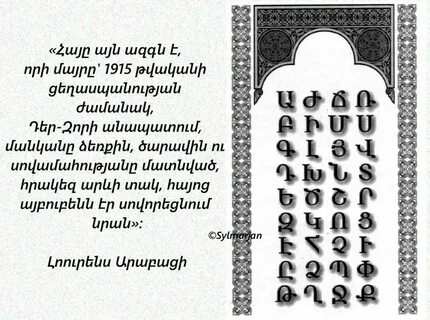 «Հայը այն ազգն է,
որի մայրը՝ 1915 թվականի
ցեղասպանության
ժամանակ,
Դեր-Զորի անապատում,
մանկանը ձեռքին, ծարավին ու
սովամահությանը մատնված,
հրակեզ արևի տակ, հայոց
այբուբենն էր սովորեցնում
նրան»:
©Sylmarjan
Լոուրենս Արաբացի
Ա Ժ Ճ Ռ
Բ Ի Մ Ս
Գ Լ Յ Վ
Դ Խ Ն Տ
Ե Ծ Շ Ր
Զ Կ Ո Ց
Է Հ Չ Ւ
Ը Ձ Պ Փ
Թ Ղ Ջ Ք